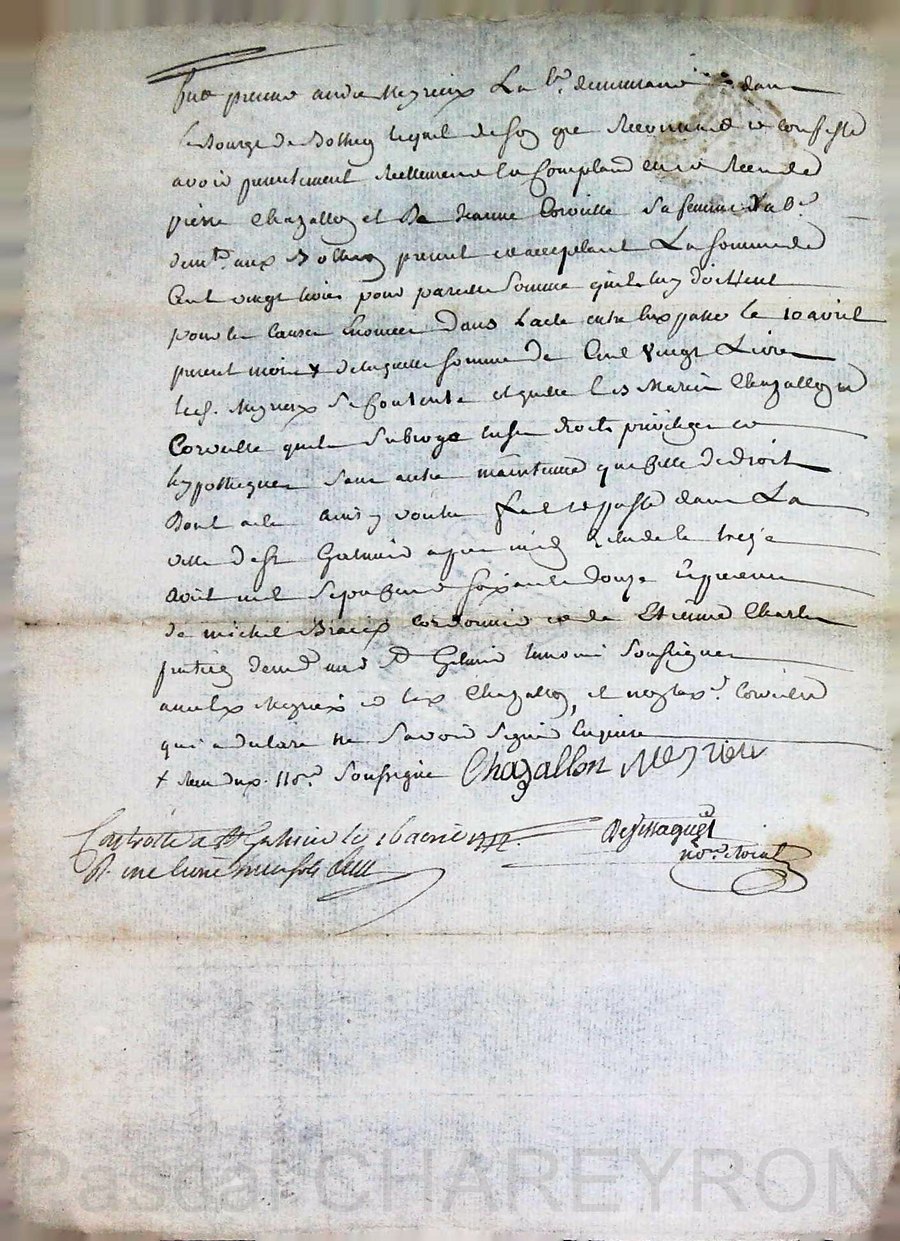 fut present andre Meyrieux La br. demeurant dans
le Bourg de Botheon lequel de son gre reconnait et confesse
avoir presentement reellement en Comptant eu et Receu de
pierre Chazallon et de Jeanne Corveille sa femme
demt. aux Botheon present et acceptant La Somme de
Cent vingt livres pour pareille Somme quils luy doittent
pour les causes Enoncées Dans L'acte entre eux passé le 10 avril
present mois + de laquelle somme de Cent Vingt Livres
led. Meyrieux se Contente et quitte les Mariés Chazallon et
Corveille quil Subroge en ses droits privileges et
hypotheques sans autre maintenue que celle de droit
Dont acte ainsy voulu fait et passé dans La
ville de St Galmier apres midy le treze
avril mil Sept Cent soixante douze En presence
de michel cordonnier et de Etienne Charles
praticien demt. aud St Galmier temoins soussignes
avec led Meyrieux et led Chazallon, et non lad. Corveille
qui a declaré ne Savoir Signer Enquise
+ Receu dud. Nore. Soussigné Chazallon Meyrieu
Controllé a St Galmier le 16 avril 1772.
R. une livre sols
nore. Roial
Pascal CHAREYRON